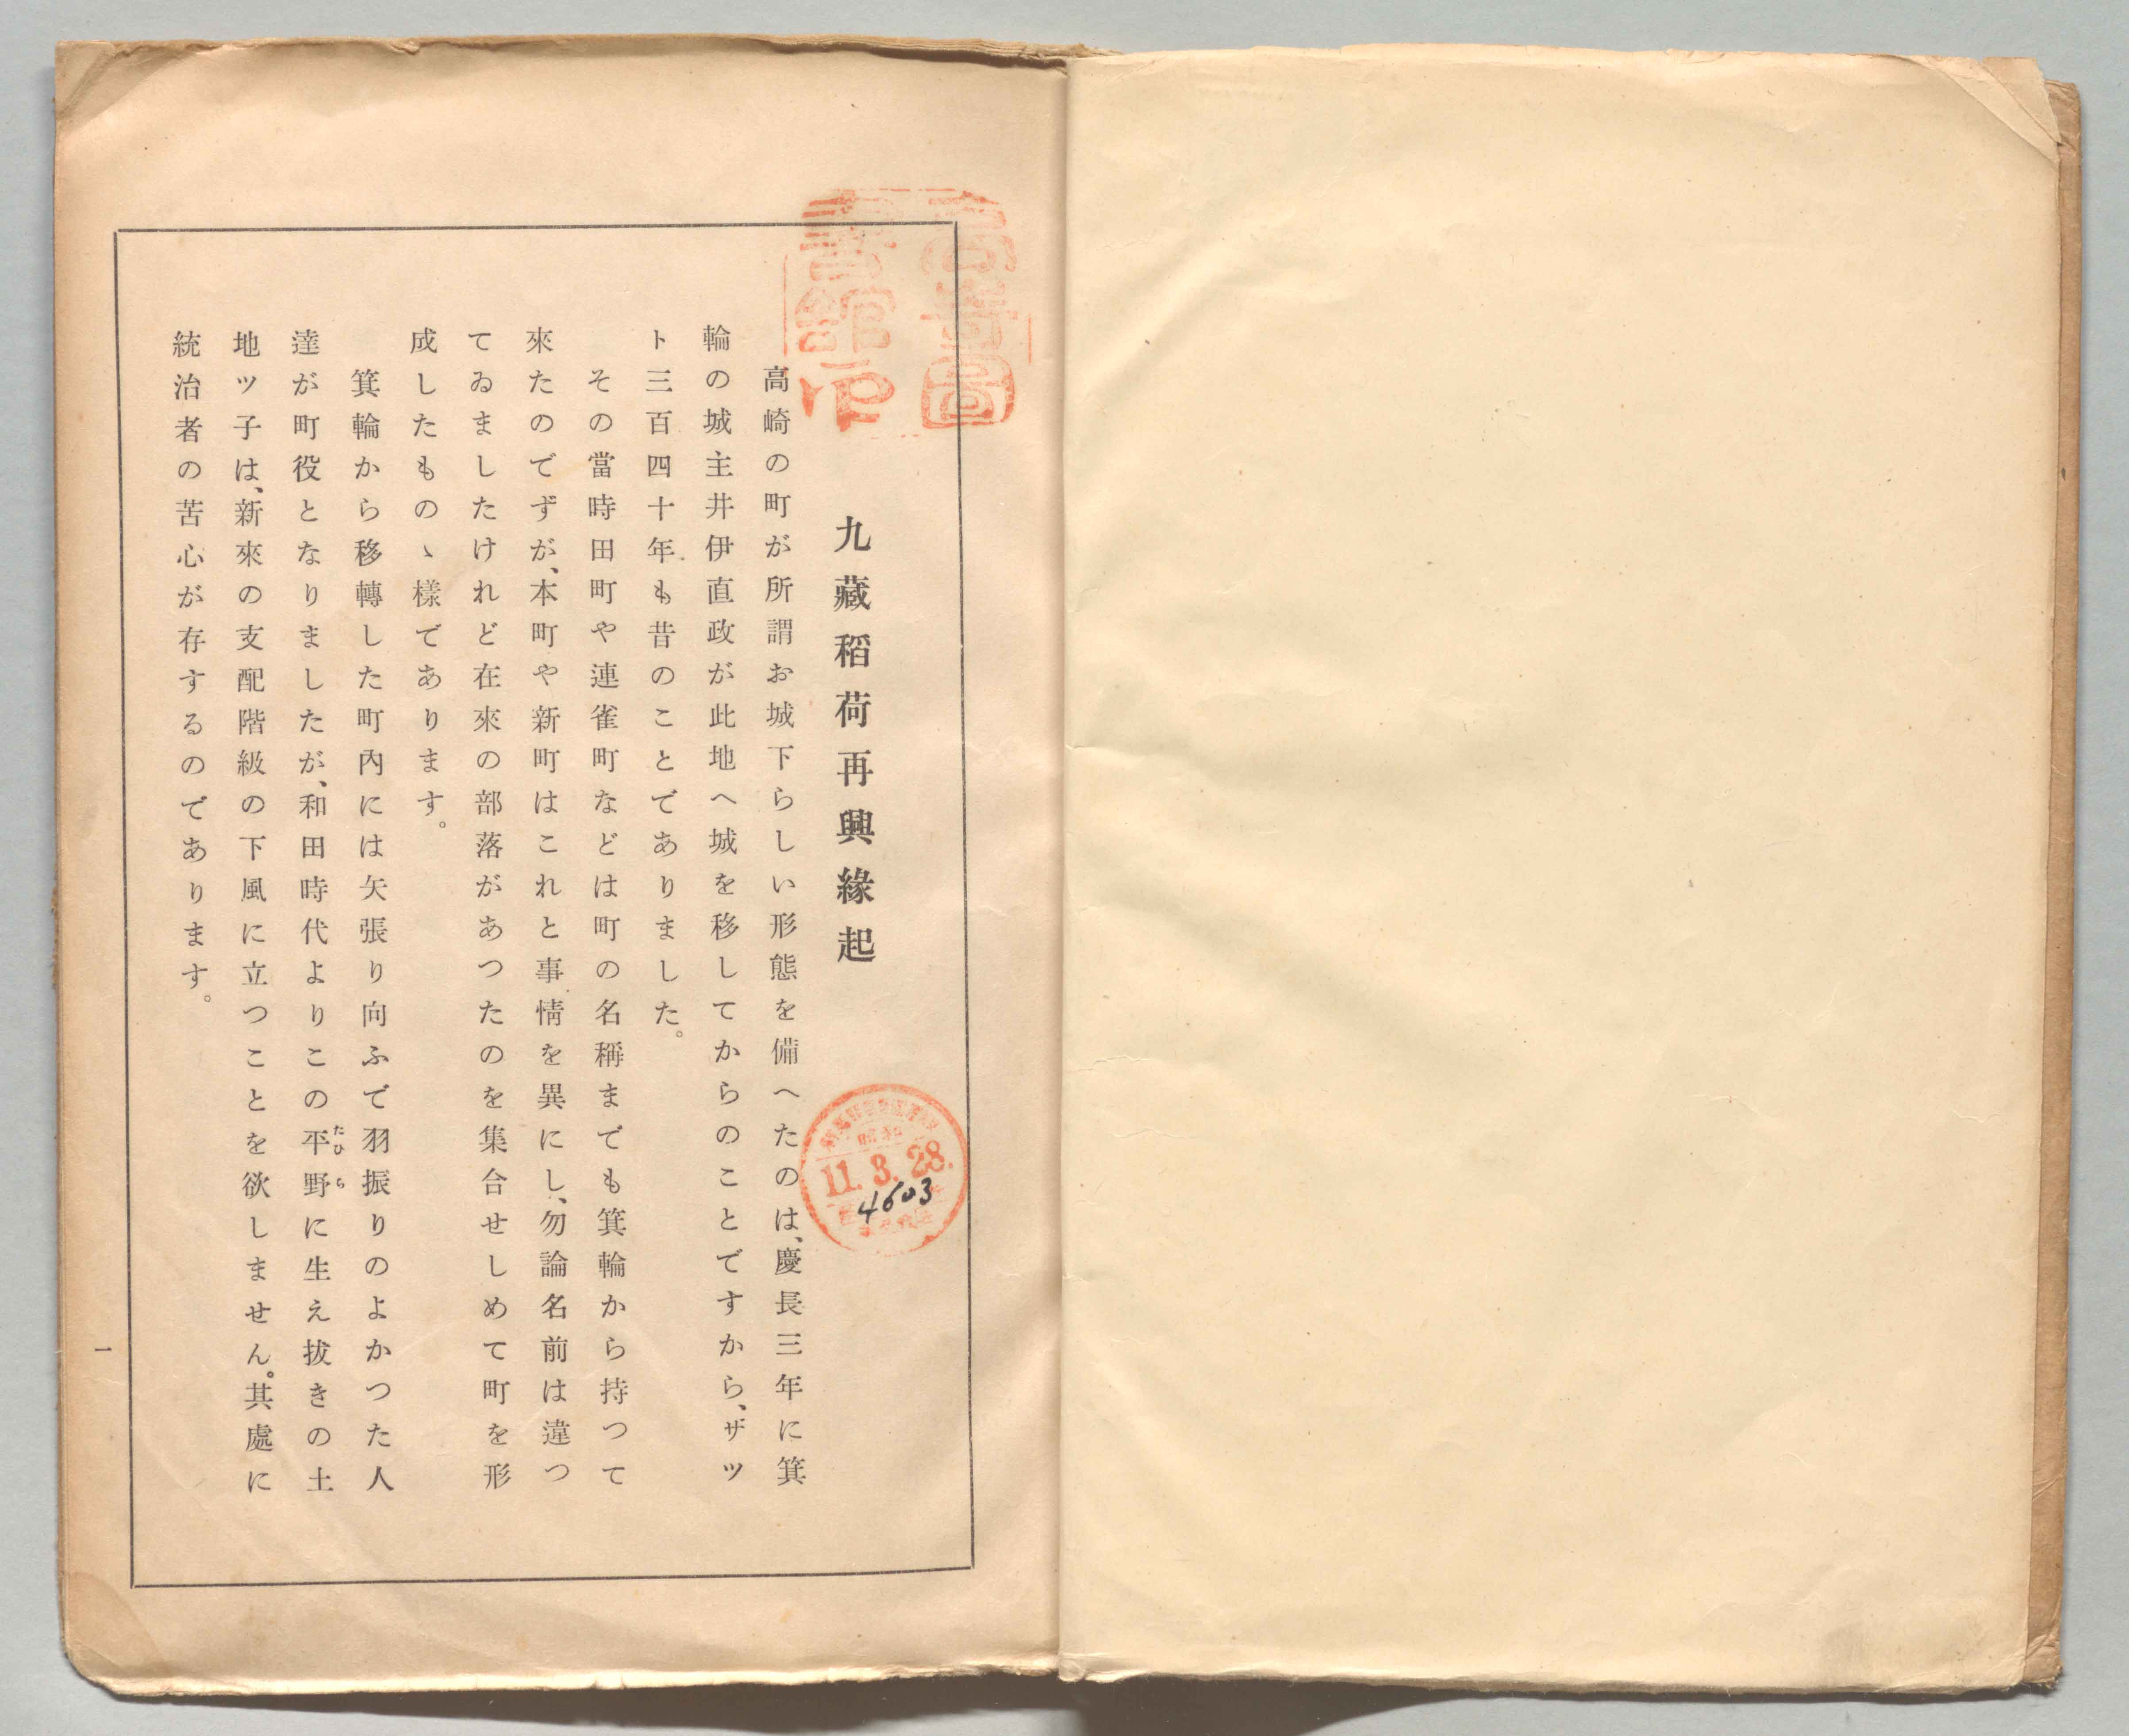 九藏稻荷再興緣起
高崎の町が所謂お城下らしい形態を備へたのは、慶長三年に箕
輪の城主井伊直政が此地へ城を移してからのことですから、ザツ
ト三百四十年も昔のことでありました。
その當時田町や連雀町などは町の名稱までも箕輪から持つて
來たのでずが、本町や新町はこれと事情を異にし、勿論名前は違つ
てゐましたけれど在來の部落があつたのを集合せしめて町を形
成したものゝ樣であります。
箕輪から移轉した町內には矢張り向ふで羽振りのよかつた人
達が町役となりましたが、和田時代よりこの平野に生え拔きの土
たひら
地ツ子は、新來の支配階級の下風に立つことを欲しません。其處に
統治者の苦心が存するのであります。
一
高崎圖
書館印
昭和
11. 3. 28.
4603